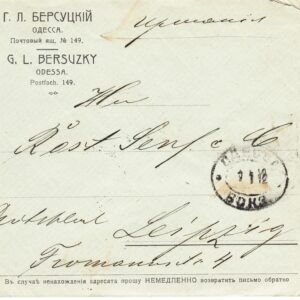 Г. Л. БЕРСУЦКІЙ
ОДЕССА.
Почтовый ящ. № 149.
G. L. BERSUZKY
ODESSA.
Postfach. 149.
Германія
Röst Senf & C
Leipzig
4
Въ случаѣ ненахожденія адресата прошу НЕМЕДЛЕННО возвратить письмо обратно